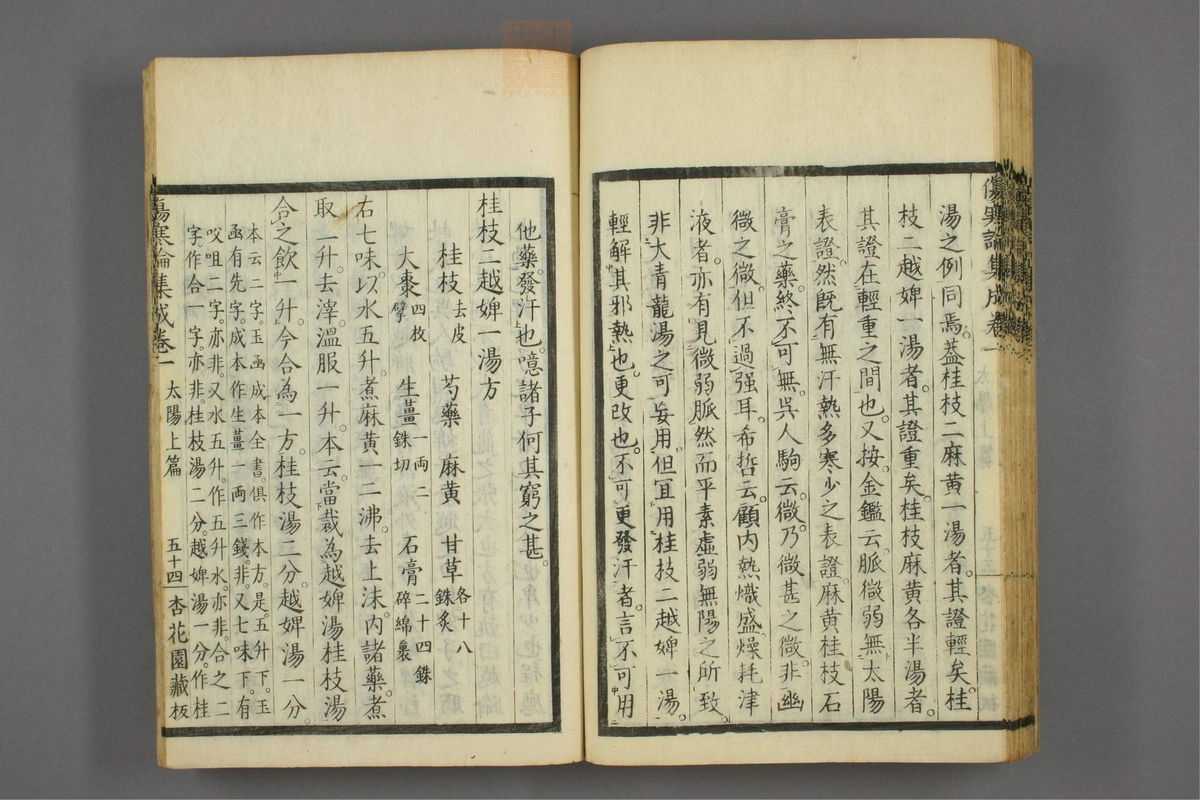 傷寒論集成卷一
湯之例同焉。蓋桂枝二麻黃一湯者。其證輕矣。桂
枝二越婢一湯者。其證重矣。桂枝麻黃各半湯者。
其證在輕重之間也。又按。金鑑云。脈微弱無太陽
表證。然既有無汗熱多寒少之表證。麻黃桂枝石
膏之藥。終不可無。吳人駒云。微乃微甚之微。非幽
微之微。但不過强耳。希哲云。顧內熱熾盛。燥耗津
液者。亦有見微弱脈。然而平素虛弱無陽之所致。
非大青龍湯之可妄用。但宜用桂枝二越婢一湯。
輕解其邪熱也。更改也。不可更發汗者。言不可用
他藥。發汗也。噫諸子何其窮之甚。
桂枝二越婢一湯方
桂枝去皮 芍藥 麻黃 甘草各十八銖炙
大棗四枚擘 生薑一両二銖切 石膏二十四銖碎綿裹
右七味。以水五升。煮麻黃一二沸。去上沫。內諸藥。煮
取一升。去滓。溫服一升。本云。當裁為越婢湯桂枝湯
合之飲一升。今合為一方。桂枝湯二分。越婢湯一分。
本云二字。玉函成本全書。俱作本方。是。五升下。玉
函有先字。成本作生薑一両三錢。非。又七味下。有
㕮咀二字。亦非。又水五升。作五升水。亦非。合之二
字。作合一字。亦非。桂枝湯二分。越婢湯一分。作桂
傷寒論集成卷一 太陽上篇 五十四 杏花園藏板